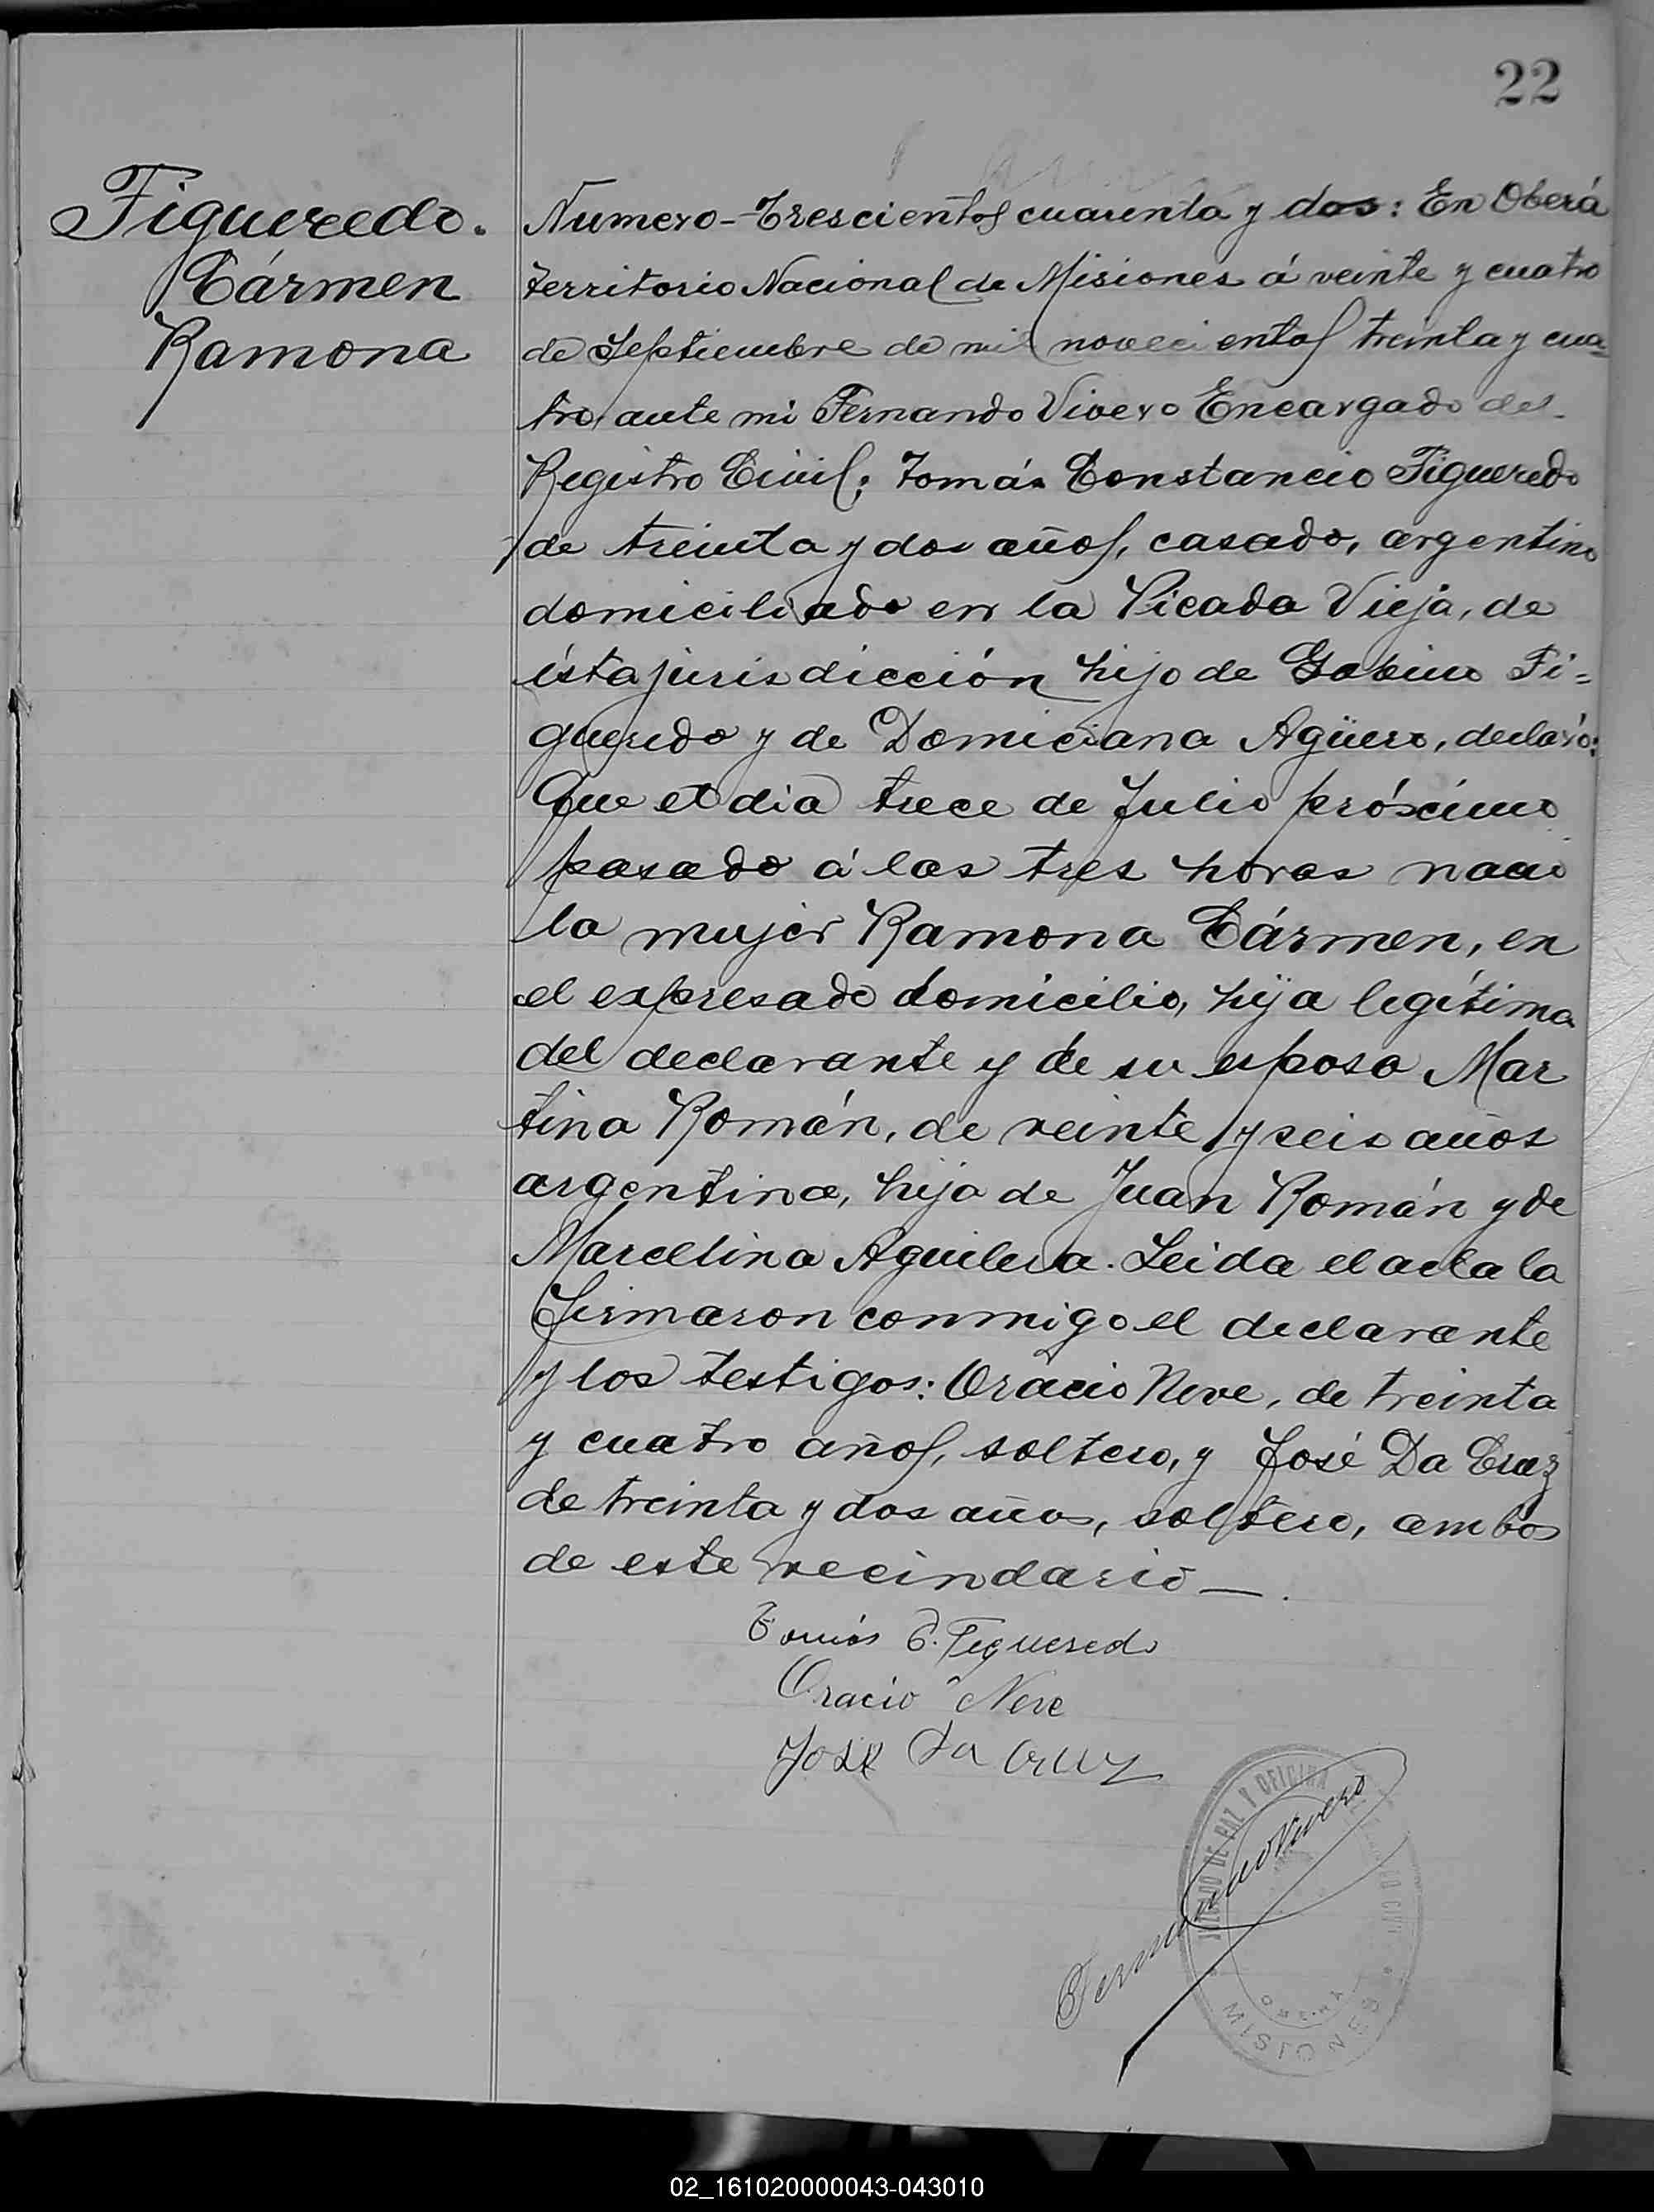 22
Figueredo.
Cármen
Ramona
Numero-Trescientos cuarenta y dos: En Oberá
territorio Nacional de Misiones á veinte y cuatro
de Septiembre de mil novecientos treinta y cua=
tro, ante mi Fernando Vivero Encargado del
Registro Civil; Tomás Constancio Figueredo
de treinta y dos años, casado, argentino
domiciliado en la Picada Vieja, de
ésta jurisdicción hijo de Gabino Fi=
gueredo y de Domiciana Agüero, declaró:
Que el dia trece de Julio próximo
pasado á las tres horas nació
la mujer Ramona Cármen, en
el expresado domicilio, hija legítima
del declarante y de su esposa Mar
tina Román, de veinte y seis años
argentina, hija de Juan Román y de
Marcelina Aguilera. Leida el acta la
firmaron conmigo el declarante
y los testigos: Oracio Neve, de treinta
y cuatro años, soltero, y José Da Cruz
de treinta y dos años, soltero, ambos
de este vecindario—.
Tomás C. Figueredo
Oracio Neve
José Da Cruz
Fernando Vivero
JUZGADO DE PAZ Y OFICINA
MISIONES
02_161020000043-043010